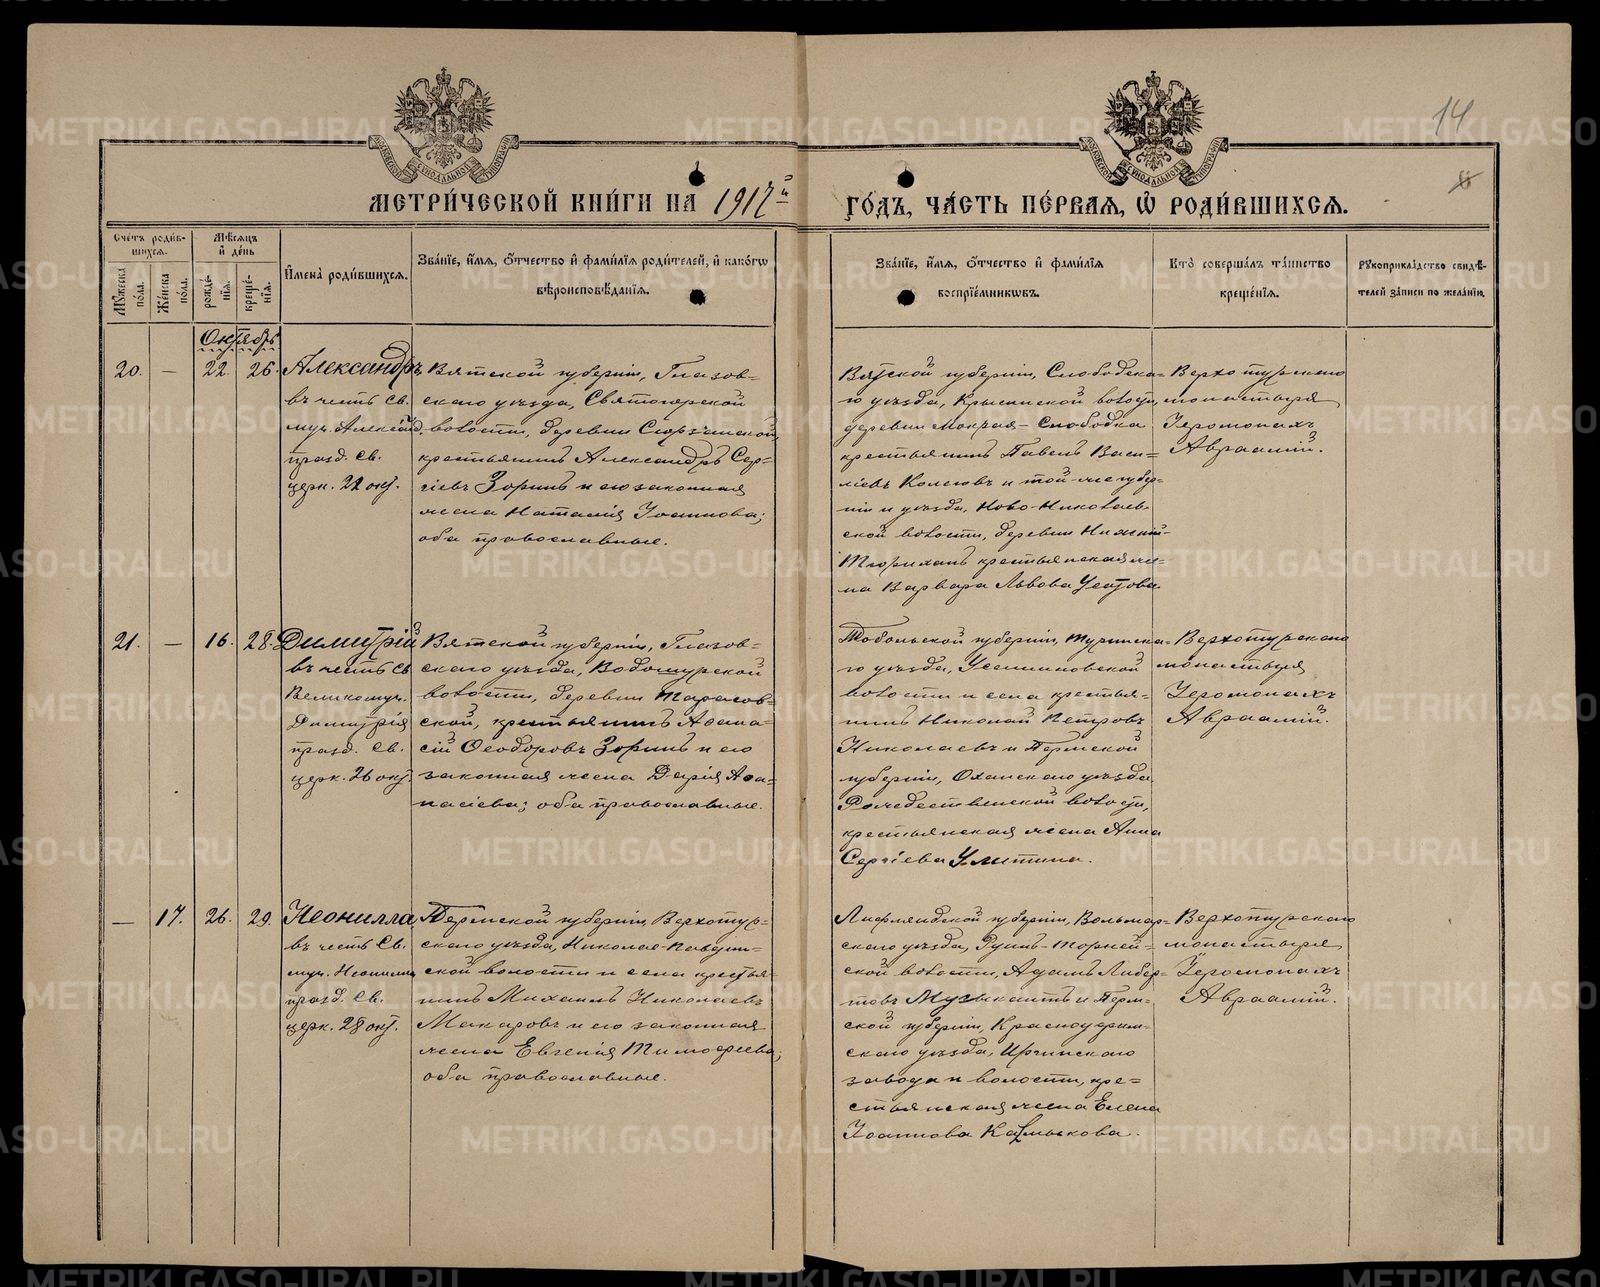 14
МЕТРИ́ЧЕСКОЙ КНИ́ГИ НА 1917й ГО́ДЪ, ЧА́СТЬ ПЕ́РВАЯ, Ѿ РОДИ́ВШИХСЯ.
Сче́тъ роди́вшихся.
Мꙋ́жеска по́ла.
Же́нска по́ла.
Мѣ́сяцъ и҆ де́нь
рожде́нїѧ.
креще́нїѧ.
И҆мена̀ роди́вшихся.
Зва́нїе, и҆́мѧ, ѻ҆́тчество и҆ фами́лїѧ роди́телей, и҆ како́гѡ
вѣроисповѣ́данїѧ.
Зва́нїе, и҆́мѧ, ѻ҆́тчество и҆ фами́лїѧ
воспрїе́мникѡвъ.
Кто̀ соверша́лъ та́инство
креще́нїѧ.
Рꙋкоприкла́дство свидѣ́-
телей за́писи по жела́нїю.
Октябрь
20. — 22. 26.
Александръ
въ честь св.
муч. Александ.
празд. св.
церк. 22 окт.
Вятской губернiи, Глазов-
скаго уѣзда, Святогорской
волости, деревни
крестьянинъ Александръ Сер-
гiевъ Зоринъ и его законная
жена Наталiя Iоаннова;
оба православные.
Вятской губернiи, Слободска-
го уѣзда, волости,
деревни Мокрая-Слободка
крестьянинъ Павелъ Васи-
лiевъ и той-же губер-
нiи и уѣзда, Ново-Николаев-
ской волости, деревни Нижнiй-
крестьянская же-
на Варвара Львова
Верхотурскаго
монастыря
Iеромонахъ
Авраамiй.
21. — 16. 28.
Димитрiй
въ честь св.
Великомуч.
Димитрiя
празд. св.
церк. 26 окт.
Вятской губернiи, Глазов-
скаго уѣзда,
волости, деревни Тарасов-
ской, крестьянинъ Аѳана-
сiй Ѳеодоровъ Зоринъ и его
законная жена Дарiя Аѳа-
насiева; оба православные.
Тобольской губернiи, Туринска-
го уѣзда,
волости и села крестья-
нинъ Николай Петровъ
Николаевъ и Пермской
губернiи, Оханскаго уѣзда,
Рождественской волости,
крестьянская жена Анна
Сергiева
Верхотурскаго
монастыря
Iеромонахъ
Авраамiй.
— 17. 26. 29.
Неонилла
въ честь св.
муч. Неониллы
празд. св.
церк. 28 окт.
Пермской губернiи, Верхотур-
скаго уѣзда, Николае-Павдин-
ской волости и села крестья-
нинъ Михаилъ Николаевъ
Макаровъ и его законная
жена Евгенiя Тимоѳеева;
оба православные.
Лифляндской губернiи, Вольмар-
скаго уѣзда,
ской волости, Адамъ Либер-
товъ Музыкантъ и Перм-
ской губернiи, Красноуфим-
скаго уѣзда, Иргинскаго
завода и волости, кре-
стьянская жена Елена
Iоаннова
Верхотурскаго
монастыря
Iеромонахъ
Авраамiй.
METRIKI.GASO-URAL.RU